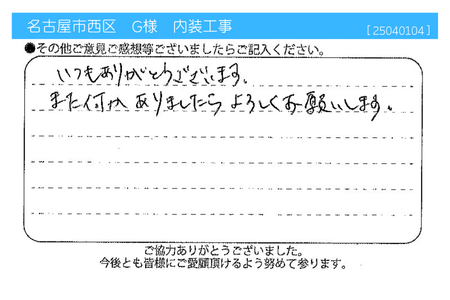 名古屋市西区　G様　内装工事
[25040104]
●その他ご意見ご感想等ございましたらご記入ください。
いつもありがとうございます。
また何か ありましたら よろしくお願いします。
ご協力ありがとうございました。
今後とも皆様にご愛顧頂けるよう努めて参ります。